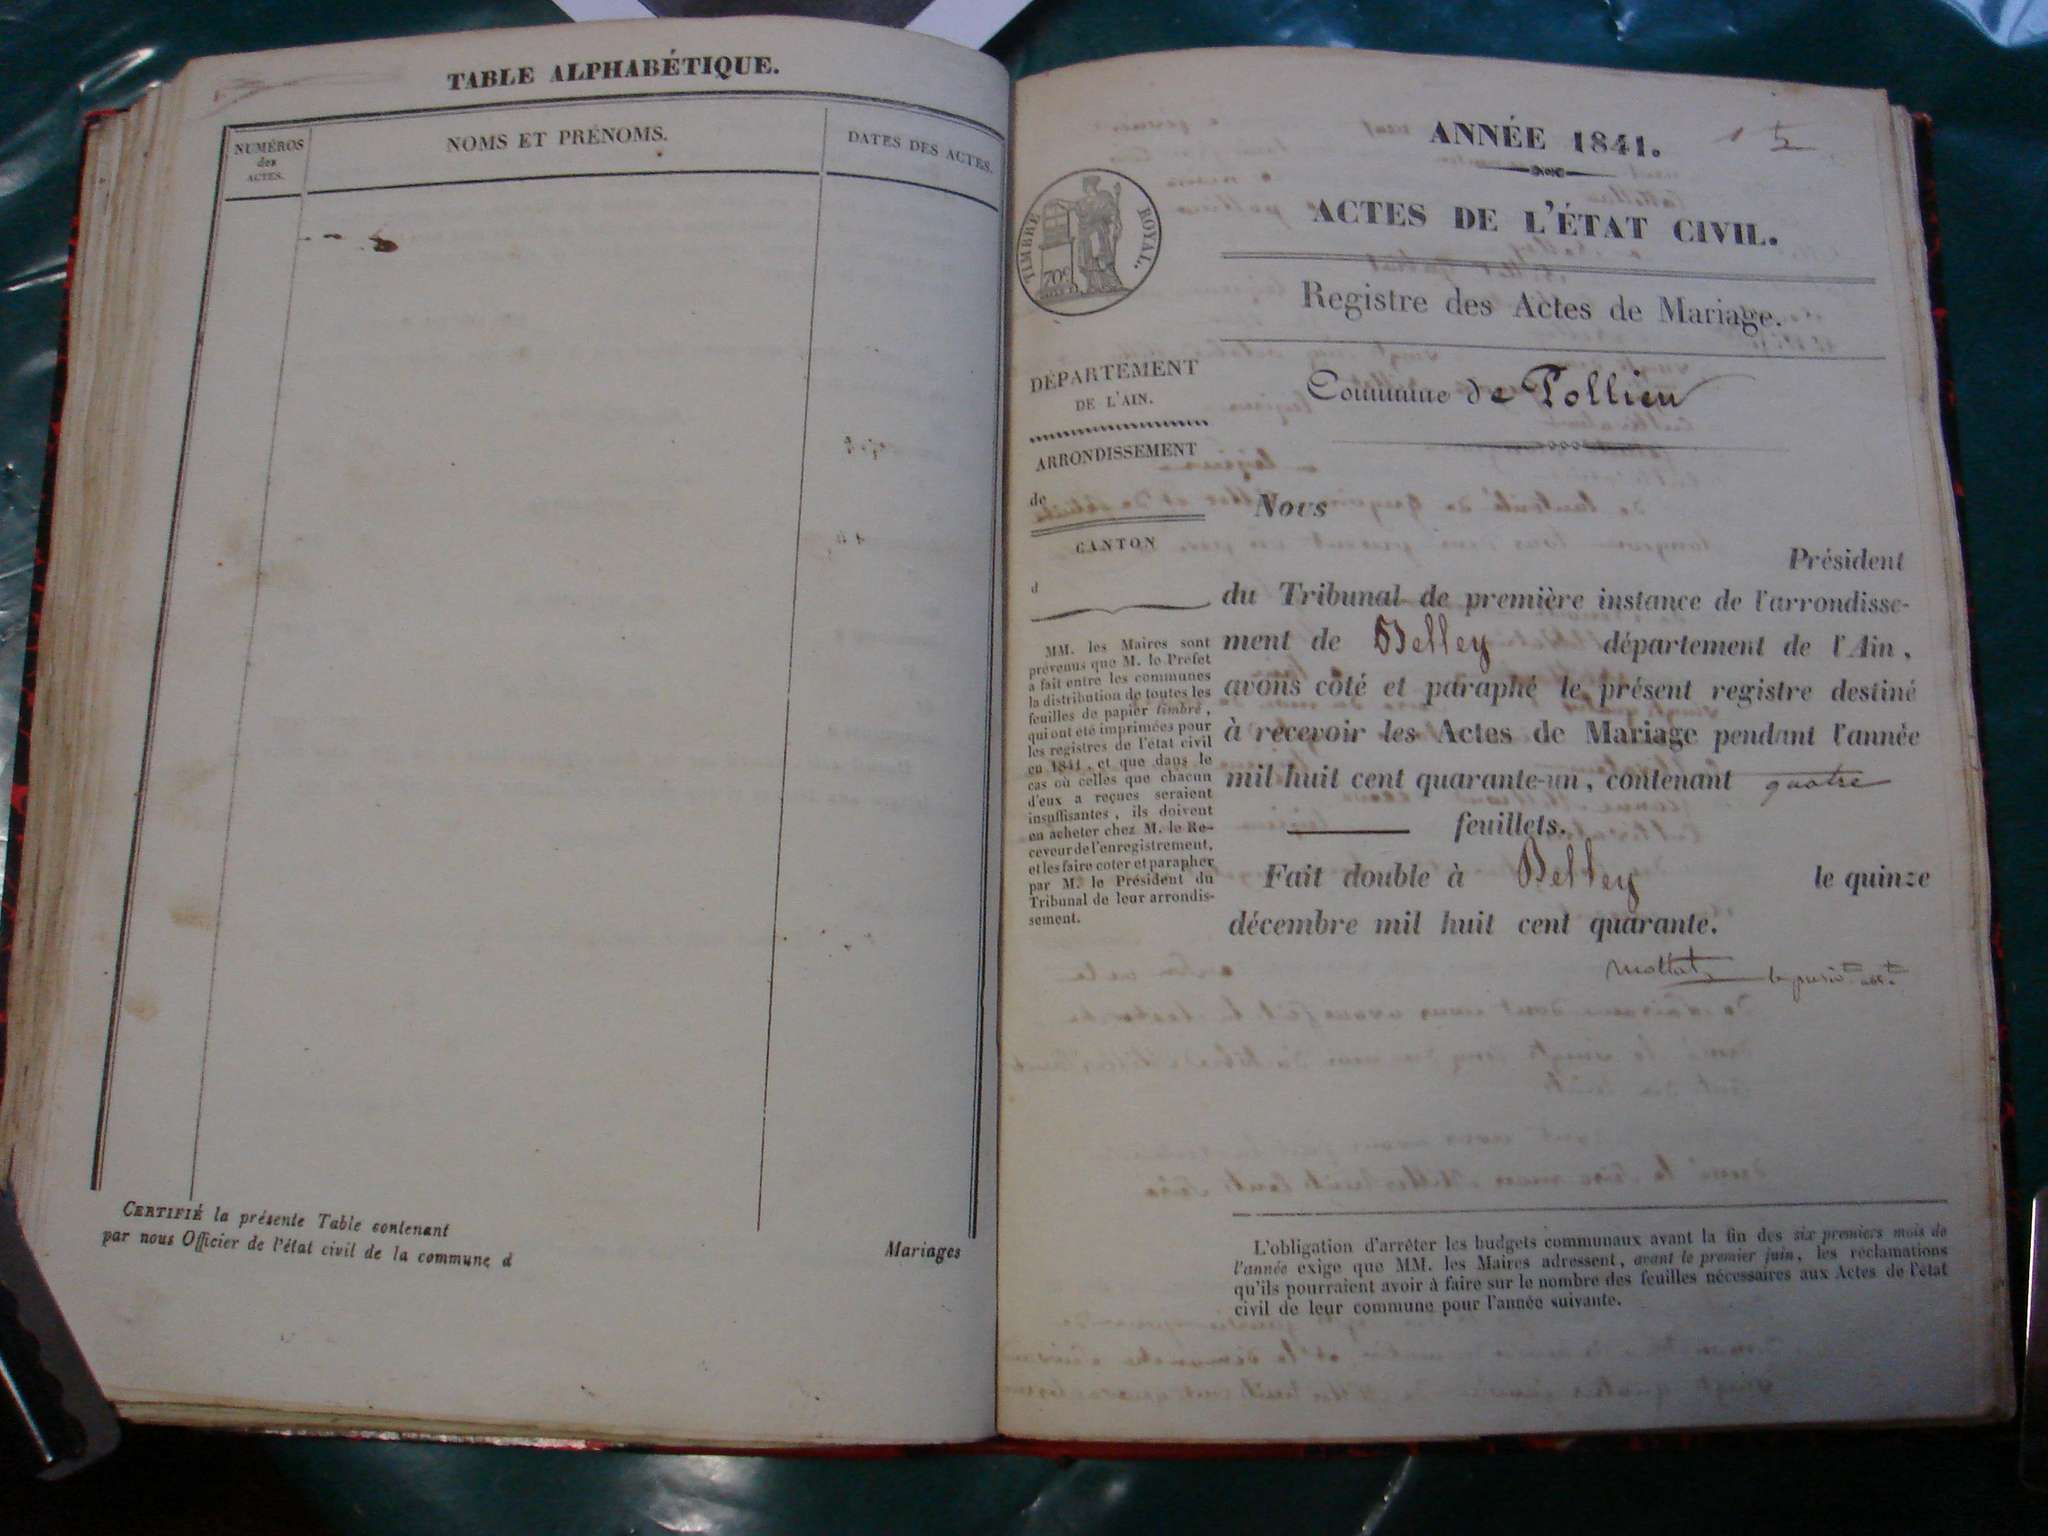 TABLE ALPHABÉTIQUE.
NUMÉROS
des
ACTES.
NOMS ET PRÉNOMS.
DATES DES ACTES.
CERTIFIÉ la présente Table contenant
Mariages
par nous Officier de l'état civil de la commune d
ANNÉE 1841.
ACTES DE L'ÉTAT CIVIL.
TIMBRE ROYAL.
70c
Registre des Actes de Mariage.
DÉPARTEMENT
DE L'AIN.
Commune de Pollieu
ARRONDISSEMENT
de
CANTON
d
MM. les Maires sont
prévenus que M. le Préfet
a fait entre les communes
la distribution de toutes les
feuilles de papier timbré,
qui ont été imprimées pour
les registres de l'état civil
en 1841, et que dans le
cas où celles que chacun
d'eux a reçues seraient
insuffisantes, ils doivent
en acheter chez M. le Re-
ceveur de l'enregistrement,
et les faire coter et parapher
par M. le Président du
Tribunal de leur arrondis-
sement.
Nous
Président
du Tribunal de première instance de l'arrondisse-
ment de Belley département de l'Ain,
avons coté et paraphé le présent registre destiné
à recevoir les Actes de Mariage pendant l'année
mil huit cent quarante-un, contenant quatre
feuillets.
Fait double à Belley le quinze
décembre mil huit cent quarante.
L'obligation d'arrêter les budgets communaux avant la fin des six premiers mois de
l'année exige que MM. les Maires adressent, avant le premier juin, les réclamations
qu'ils pourraient avoir à faire sur le nombre des feuilles nécessaires aux Actes de l'état
civil de leur commune pour l'année suivante.